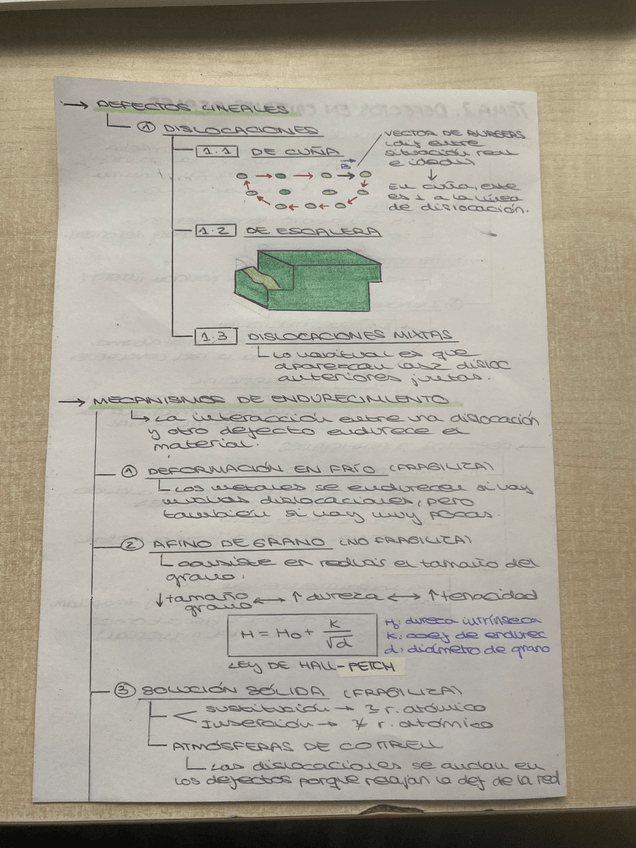 → DEFECTOS LINEALES
① DISLOCACIONES
1.1 DE CUÑA
B
VECTOR DE BURGERS
(dif entre
situación real
e ideal)
↓
En cuña, este
es ⊥ a la línea
de dislocación.
1.2 DE ESCALERA
1.3 DISLOCACIONES MIXTAS
Lo habitual es que
aparezcan las 2 disloc
anteriores juntas.
→ MECANISMOS DE ENDURECIMIENTO
↳ La interacción entre una dislocación
y otro defecto endurece el
material.
① DEFORMACIÓN EN FRÍO (FRAGILIZA)
Los metales se endurecen si hay
muchas dislocaciones, pero
también si hay muy pocas.
② AFINO DE GRANO (NO FRAGILIZA)
consiste en reducir el tamaño del
grano.
↓ tamaño grano ↔ ↑ dureza ↔ ↑ tenacidad
H = H0 + K/√d
H0: dureza intrínseca
K: coef de endurec
d: diámetro de grano
LEY DE HALL-PETCH
③ SOLUCIÓN SÓLIDA (FRAGILIZA)
sustitución → r. atómico
Inserción → ≠ r. atómico
ATMÓSFERAS DE COTTRELL
Las dislocaciones se anclan en
los defectos porque relajan la def de la red